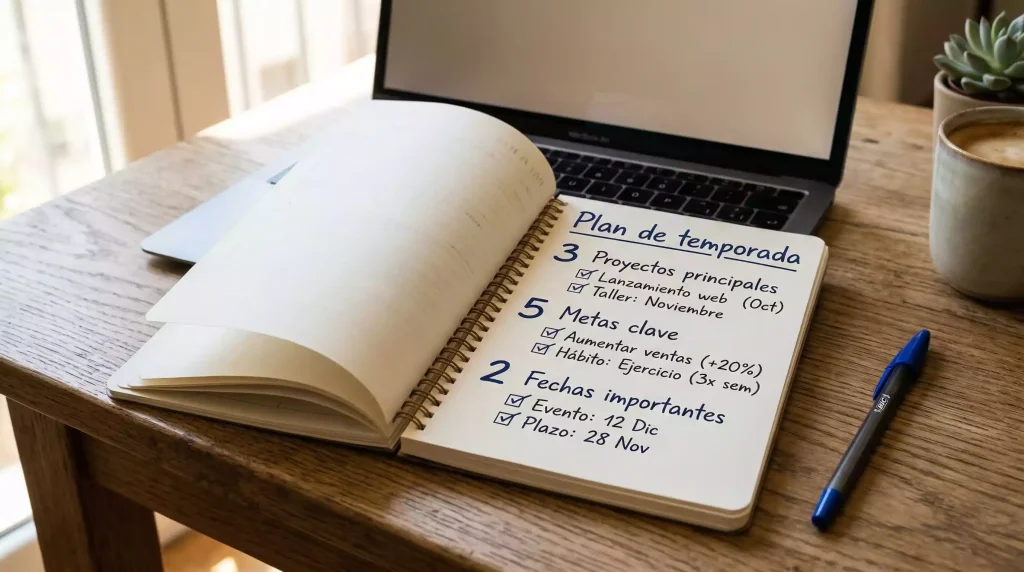 Plan de temporada
3 Proyectos principales
☑ Lanzamiento web (Oct)
☑ Taller: Noviembre
5 Metas clave
☑ Aumentar ventas (+20%)
☑ Hábito: Ejercicio (3x sem)
2 Fechas importantes
☑ Evento: 12 Dic
☑ Plazo: 28 Nov